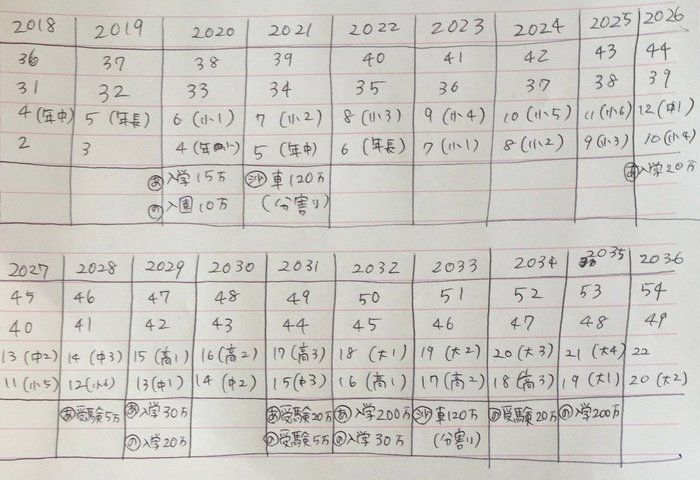 2018 2019 2020 2021 2022 2023 2024 2025 2026
36 37 38 39 40 41 42 43 44
31 32 33 34 35 36 37 38 39
4(年中) 5(年長) 6(小1) 7(小2) 8(小3) 9(小4) 10(小5) 11(小6) 12(中1)
2 3 4(年少) 5(年中) 6(年長) 7(小1) 8(小2) 9(小3) 10(小4)
あ入学15万 沙車120万 あ入学20万
の入園10万 (分割り)
2027 2028 2029 2030 2031 2032 2033 2034 2035 2036
45 46 47 48 49 50 51 52 53 54
40 41 42 43 44 45 46 47 48 49
13(中2) 14(中3) 15(高1) 16(高2) 17(高3) 18(大1) 19(大2) 20(大3) 21(大4) 22
11(小5) 12(小6) 13(中1) 14(中2) 15(中3) 16(高1) 17(高2) 18(高3) 19(大1) 20(大2)
あ受験5万 あ入学30万 あ受験20万 あ入学200万 沙車120万 の受験20万 の入学200万
の入学20万 の受験5万 の入学30万 (分割り)